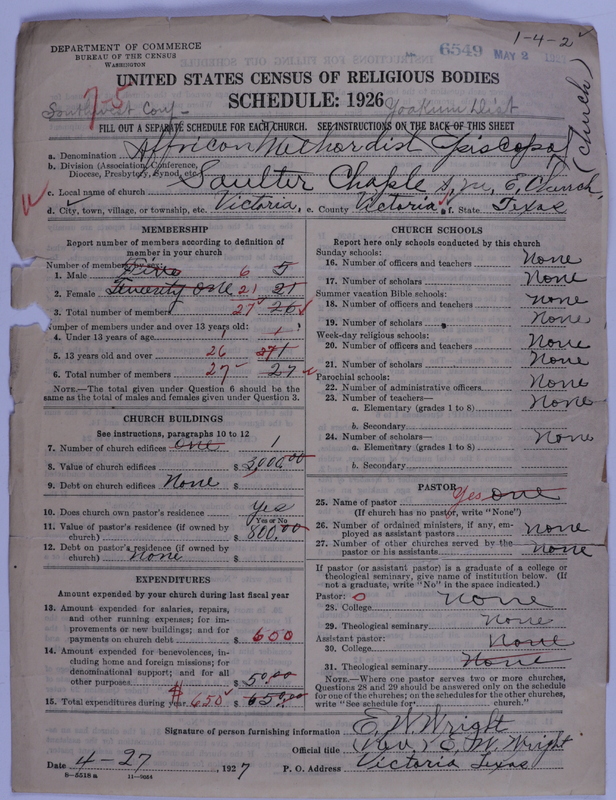 1-4-2
DEPARTMENT OF COMMERCE
BUREAU OF THE CENSUS
WASHINGTON
6549 MAY 2
UNITED STATES CENSUS OF RELIGIOUS BODIES
SCHEDULE: 1926
7-5
Southwest Conf- Yoakum Dist
FILL OUT A SEPARATE SCHEDULE FOR EACH CHURCH. SEE INSTRUCTIONS ON THE BACK OF THIS SHEET
a. Denomination African Methordist Episcopal (Church)
b. Division (Association, Conference, Diocese, Presbytery, Synod, etc.
c. Local name of church Saulter Chaple A, M, E, Church,
d. City, town, village, or township, etc. Victoria, e. County Victoria, f. State Texas
MEMBERSHIP
Report number of members according to definition of
member in your church
Number of members by sex:
1. Male Five 6 5
2. Female Twenty one 21 21
3. Total number of members 27 26
Number of members under and over 13 years old:
4. Under 13 years of age 1
5. 13 years old and over 26
6. Total number of members 27 27
NOTE.—The total given under Question 6 should be the
same as the total of males and females given under Question 3.
CHURCH BUILDINGS
See instructions, paragraphs 10 to 12
7. Number of church edifices one 1
8. Value of church edifices $ 3,000.00
9. Debt on church edifices None $
10. Does church own pastor's residence Yes
Yes or No
11. Value of pastor's residence (if owned by
church) $ 800.00
12. Debt on pastor's residence (if owned by
church) None $
EXPENDITURES
Amount expended by your church during last fiscal year
13. Amount expended for salaries, repairs,
and other running expenses; for im-
provements or new buildings; and for
payments on church debt $ 600
14. Amount expended for benevolences, in-
cluding home and foreign missions; for
denominational support; and for all
other purposes $ 50.00
15. Total expenditures during year $ 650 $ 650.00
CHURCH SCHOOLS
Report here only schools conducted by this church
Sunday schools:
16. Number of officers and teachers None
17. Number of scholars None
Summer vacation Bible schools:
18. Number of officers and teachers None
19. Number of scholars None
Week-day religious schools:
20. Number of officers and teachers None
21. Number of scholars None
Parochial schools:
22. Number of administrative officers None
23. Number of teachers— None
a. Elementary (grades 1 to 8)
b. Secondary
24. Number of scholars— None
a. Elementary (grades 1 to 8)
b. Secondary
PASTOR
25. Name of pastor Yes one
(If church has no pastor, write "None")
26. Number of ordained ministers, if any, em-
ployed as assistant pastors None
27. Number of other churches served by the
pastor or his assistants None
If pastor (or assistant pastor) is a graduate of a college or
theological seminary, give name of institution below. (If
not a graduate, write "No" in the space indicated.)
Pastor: 0
28. College None
29. Theological seminary None
Assistant pastor:
30. College None
31. Theological seminary None
NOTE.—Where one pastor serves two or more churches,
Questions 28 and 29 should be answered only on the schedule
for one of the churches; on the schedules for the other churches,
write "See schedule for church."
Signature of person furnishing information E. W. Wright
Official title (Rev.) E. W. Wright
Date 4-27, 1927 P. O. Address Victoria Texas
8-5518 a 11-9084